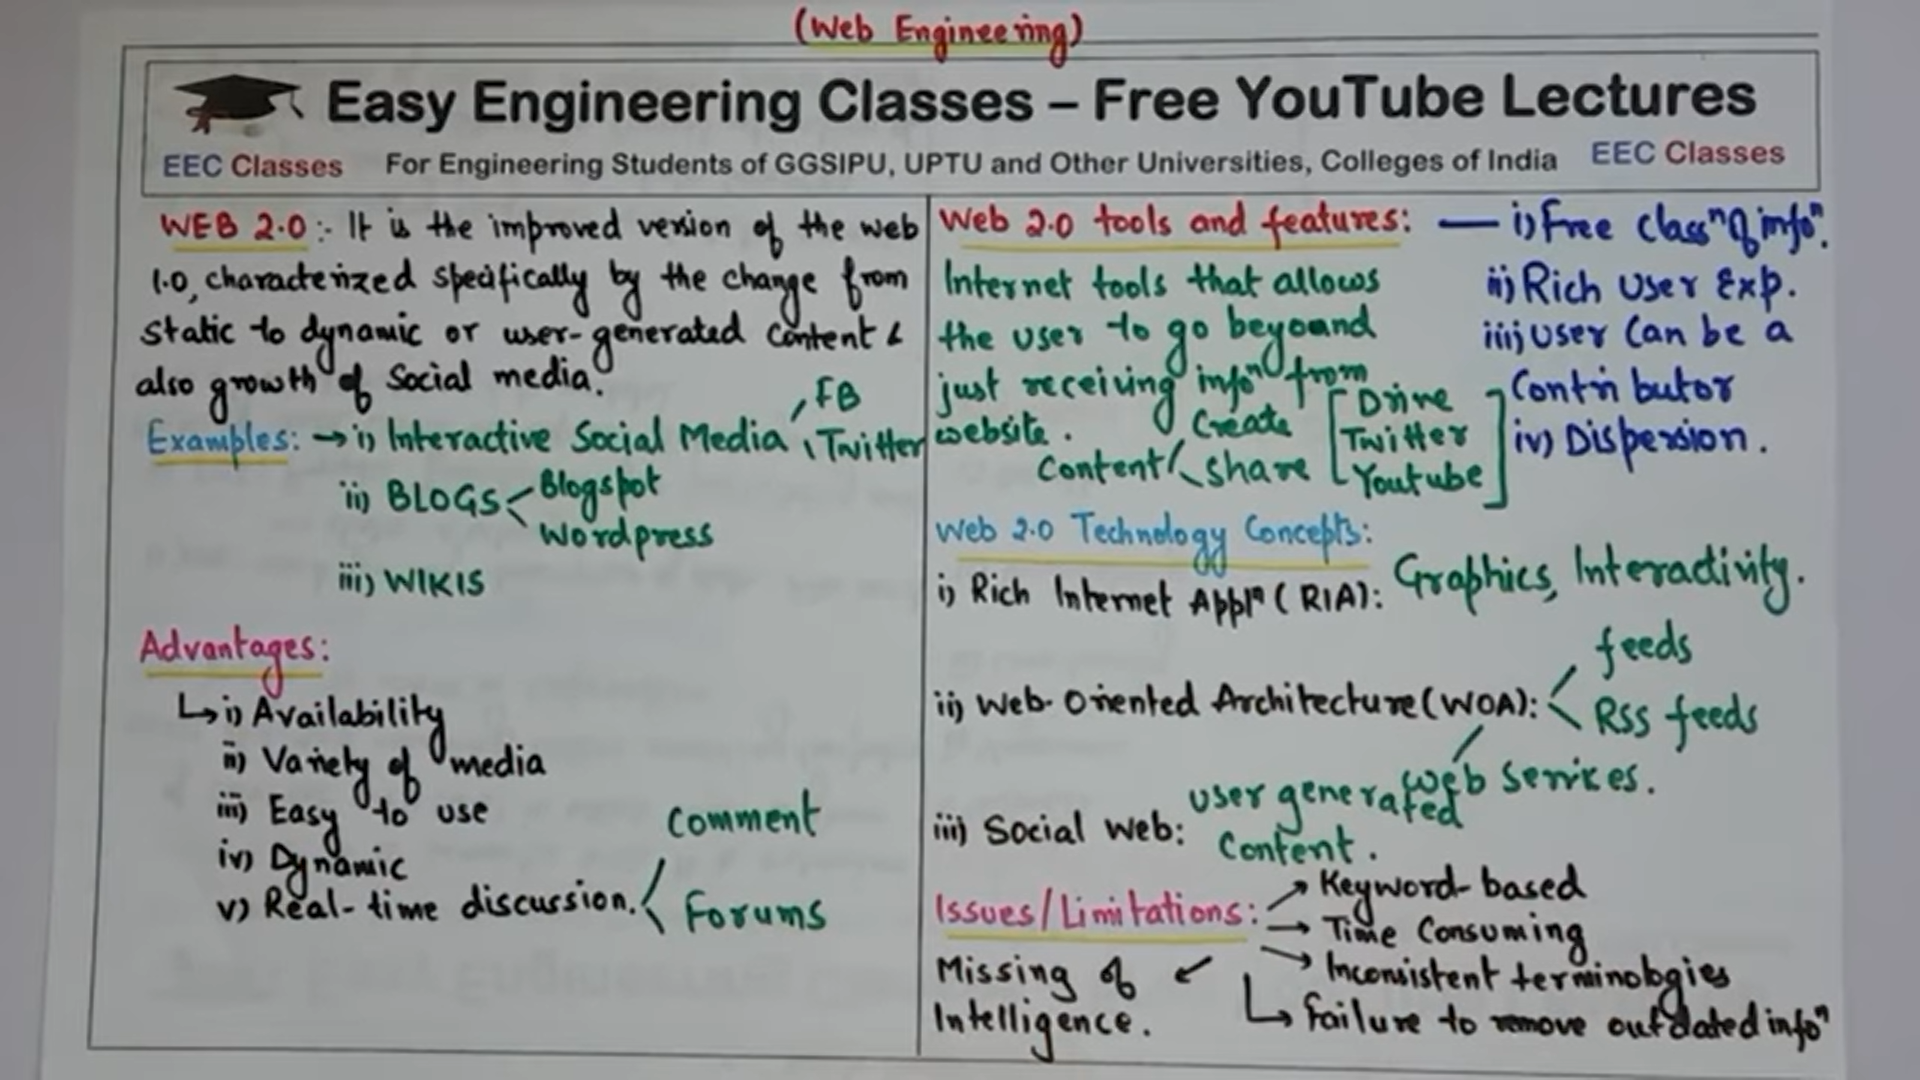 (Web Engineering)
Easy Engineering Classes – Free YouTube Lectures
EEC Classes For Engineering Students of GGSIPU, UPTU and Other Universities, Colleges of India EEC Classes
WEB 2.0 :- It is the improved version of the web
1.0, characterized specifically by the change from
static to dynamic or user-generated content &
also growth of Social media.
Examples: → i) Interactive Social Media FB
Twitter
ii) BLOGS Blogspot
Wordpress
iii) WIKIS
Advantages:
↳ i) Availability
ii) Variety of media
iii) Easy to use
iv) Dynamic
v) Real-time discussion. Comment
Forums
Web 2.0 tools and features: — i) Free Classⁿ of infoⁿ.
Internet tools that allows
the user to go beyoand
just receiving infoⁿ from
website.
Content Create
Share
[Drive
Twitter
Youtube]
ii) Rich User Exp.
iii) User Can be a
Contributor
iv) Dispersion.
Web 2.0 Technology Concepts:
i) Rich Internet Applⁿ (RIA): Graphics, Interactivity.
ii) Web-Oriented Architecture (WOA): feeds
RSS feeds
web Services.
iii) Social Web: user generated
Content.
Issues/Limitations: → Keyword-based
→ Time Consuming
→ Inconsistent terminologies
↳ Failure to remove outdated infoⁿ
Missing of
Intelligence.